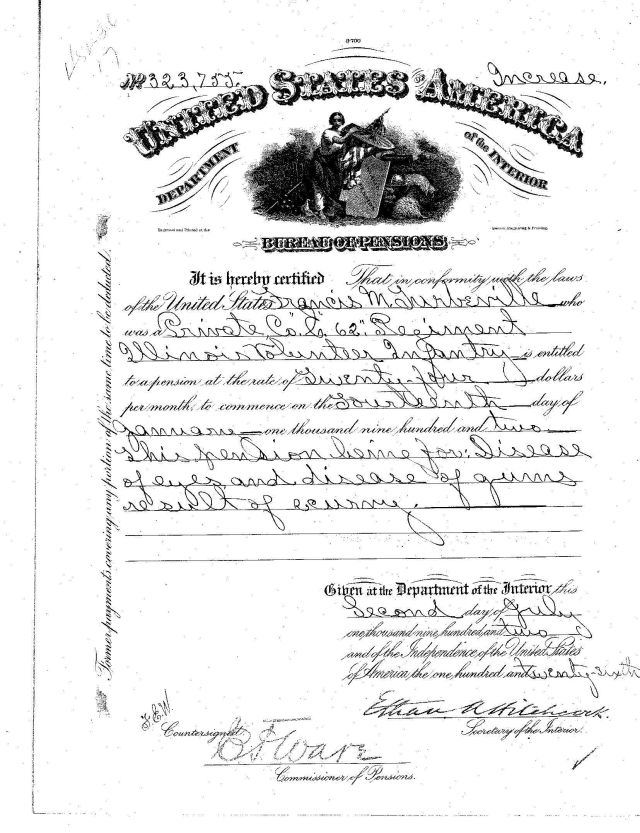 3-700
No 323,755.
Increase.
UNITED STATES OF AMERICA
DEPARTMENT of the INTERIOR
BUREAU OF PENSIONS
It is hereby certified That in conformity with the laws
of the United States Francis M. Turbeville who
was a Private Co. G, 62" Regiment
Illinois Volunteer Infantry is entitled
to a pension at the rate of Twenty-four dollars
per month, to commence on the Fourteenth day of
January one thousand nine hundred and two
This pension being for: Disease
of eyes and disease of gums
result of scurvy.
Former payments covering any portion of the same time to be deducted.
Given at the Department of the Interior this
Second day of July
one thousand nine hundred and two
and of the Independence of the United States
of America the one hundred and twenty-sixth
Ethan A Hitchcock.
Secretary of the Interior.
F.E.W.
Countersigned
Ware
Commissioner of Pensions.